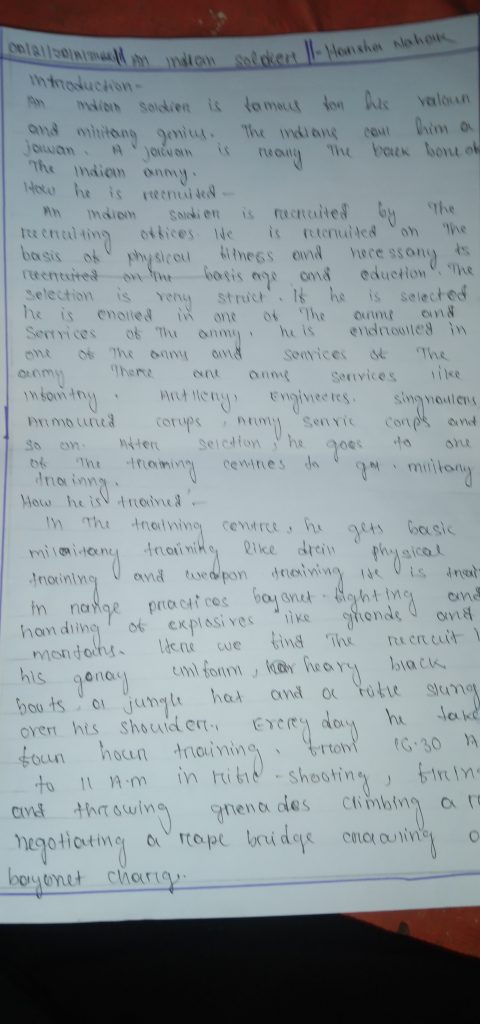 An indian soldiert || - Harsha Nahak
Introduction -
An indian soldier is famous for his valour
and militang genius. The indians caul him a
jawan. A jawan is reany The back bone of
The indian anmy.
How he is recruited -
An indian soldier is recruited by The
recruiting offices. He is recruited on The
basis of physical fitness and necessany is
recruited on The basis age and eduction. The
selection is veny struct. If he is selected
he is enolled in one of The anms and
Serrvices of The anmy, he is endroulled in
one of The anms and senrvices of The
anmy There are anms serrvices like
infantry. Antilleny, Engineeres. singnaulens
Armoured corups, Army servic corps and
so on. After selction, he goes to one
of The training centres to get military
trainng.
How he is trained -
In The training centre, he gets basic
milaitany training like drein physical
training and weapon training He is
in range practices bayonet-fighting and
handling of explosires like grenade and
montars. Here we find The recruit
his gonay uniform, heary black
bouts, a jungle hat and a rifle slung
over his shoulder. Everyday he take
foun houn training. from 6.30 A
to 11 A.m in rifle-shooting, firin
and throwing grenades climbing a r
negotiating a rope bridge craawing o
bayonet charig.